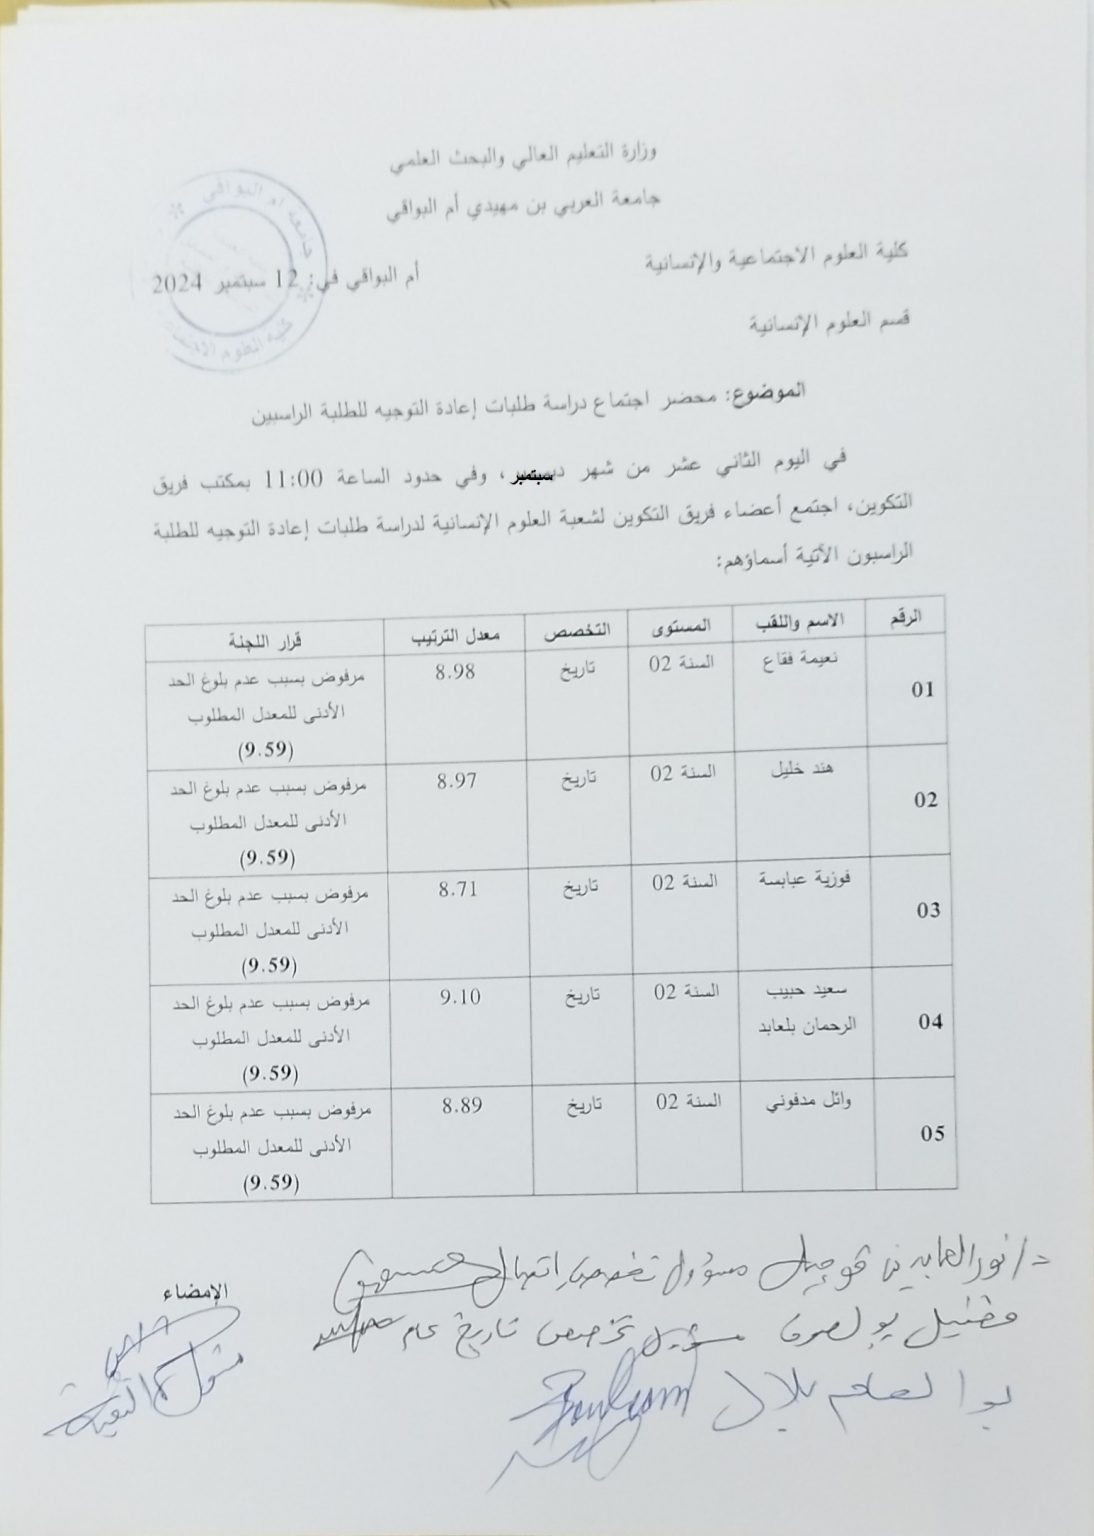 وزارة التعليم العالي والبحث العلمي
جامعة العربي بن مهيدي أم البواقي
كلية العلوم الاجتماعية والإنسانية
أم البواقي في: 12 سبتمبر 2024
جامعة أم البواقي
كلية العلوم
قسم العلوم الإنسانية
الموضوع: محضر اجتماع دراسة طلبات إعادة التوجيه للطلبة الراسبين
في اليوم الثاني عشر من شهر سبتمبر، وفي حدود الساعة 11:00 بمكتب فريق
التكوين، اجتمع أعضاء فريق التكوين لشعبة العلوم الإنسانية لدراسة طلبات إعادة التوجيه للطلبة
الراسبون الآتية أسماؤهم:
الرقم الاسم واللقب المستوى التخصص معدل الترتيب قرار اللجنة
01 نعيمة فقاع السنة 02 تاريخ 8.98 مرفوض بسبب عدم بلوغ الحد
الأدنى للمعدل المطلوب
(9.59)
02 هند خليل السنة 02 تاريخ 8.97 مرفوض بسبب عدم بلوغ الحد
الأدنى للمعدل المطلوب
(9.59)
03 فوزية عبابسة السنة 02 تاريخ 8.71 مرفوض بسبب عدم بلوغ الحد
الأدنى للمعدل المطلوب
(9.59)
04 سعيد حبيب السنة 02 تاريخ 9.10 مرفوض بسبب عدم بلوغ الحد
الرحمان بلعابد الأدنى للمعدل المطلوب
(9.59)
05 وائل مدفوني السنة 02 تاريخ 8.89 مرفوض بسبب عدم بلوغ الحد
الأدنى للمعدل المطلوب
(9.59)
د/ نور العابدين قوجيل مسؤول تخصص اتصال
الإمضاء
مسؤول تخصص تاريخ عام
بلال